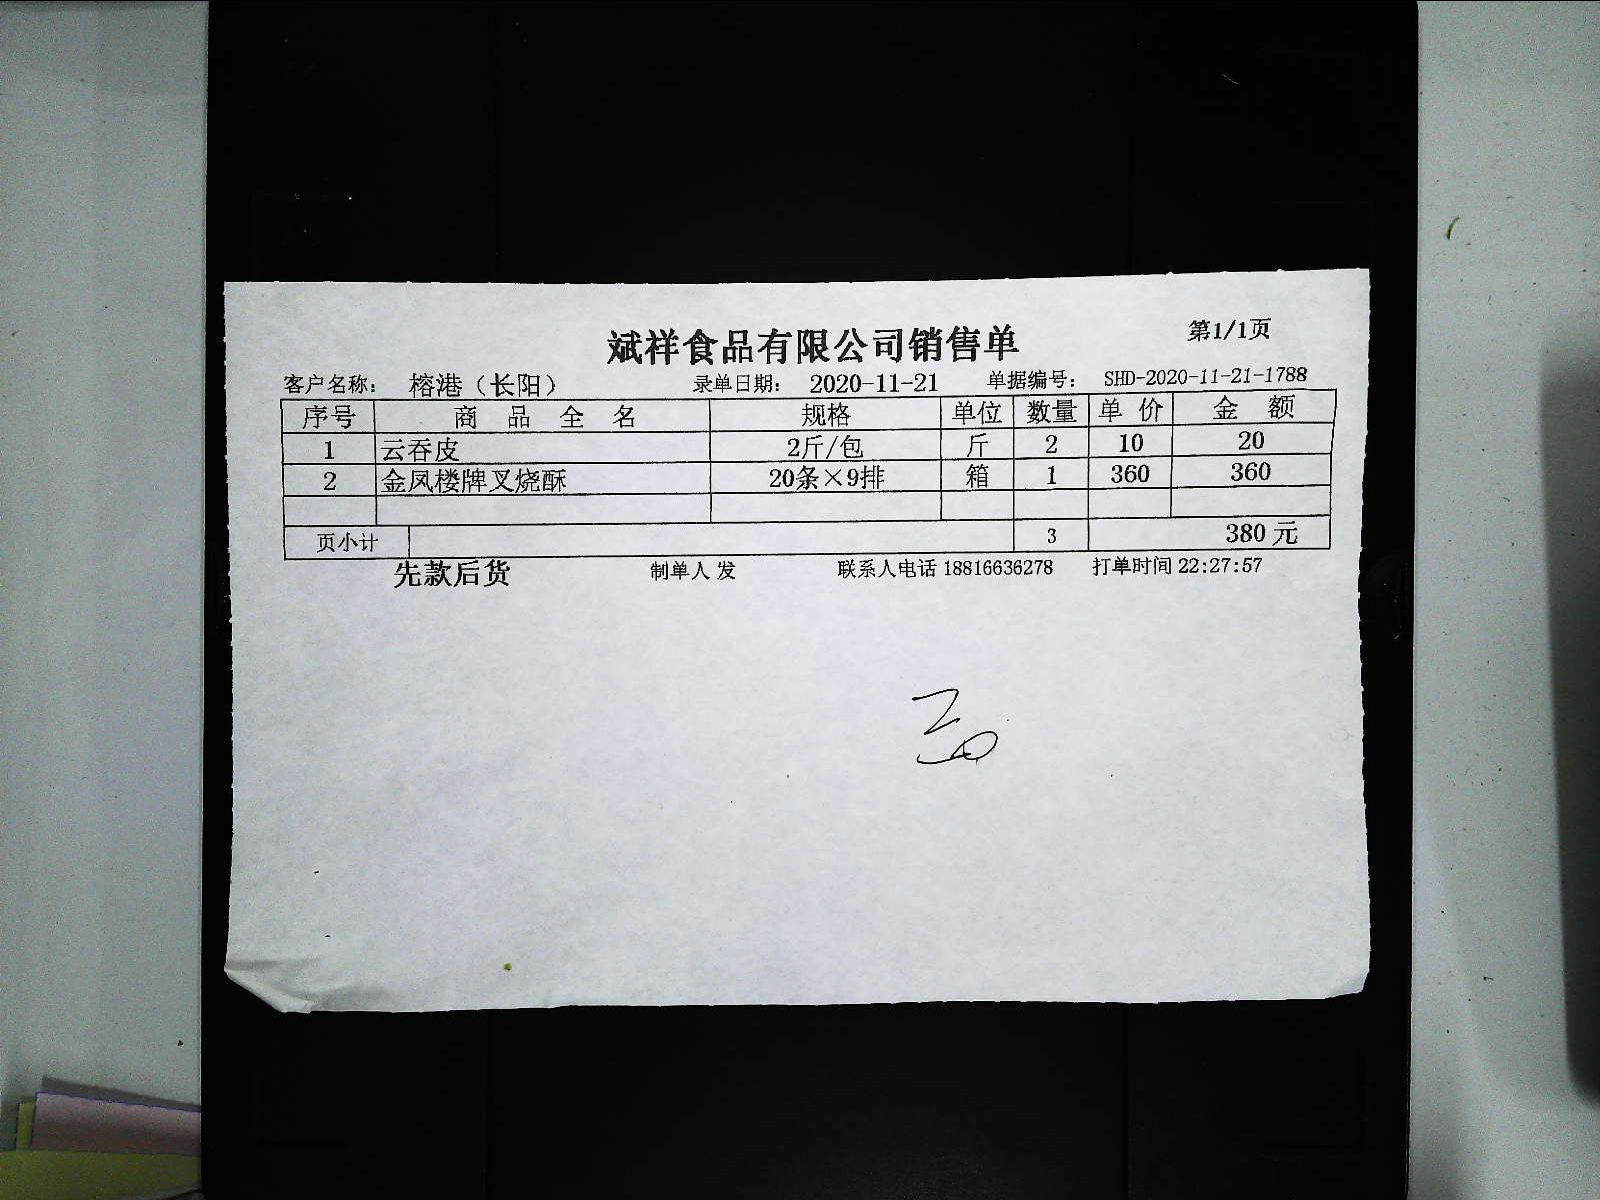 斌祥食品有限公司销售单 第1/1页
客户名称： 榕港（长阳） 录单日期： 2020-11-21 单据编号： SHD-2020-11-21-1788
序号 商品全名 规格 单位 数量 单价 金额
1 云吞皮 2斤/包 斤 2 10 20
2 金凤楼牌叉烧酥 20条×9排 箱 1 360 360
页小计 3 380元
先款后货 制单人 发 联系人电话 18816636278 打单时间 22:27:57